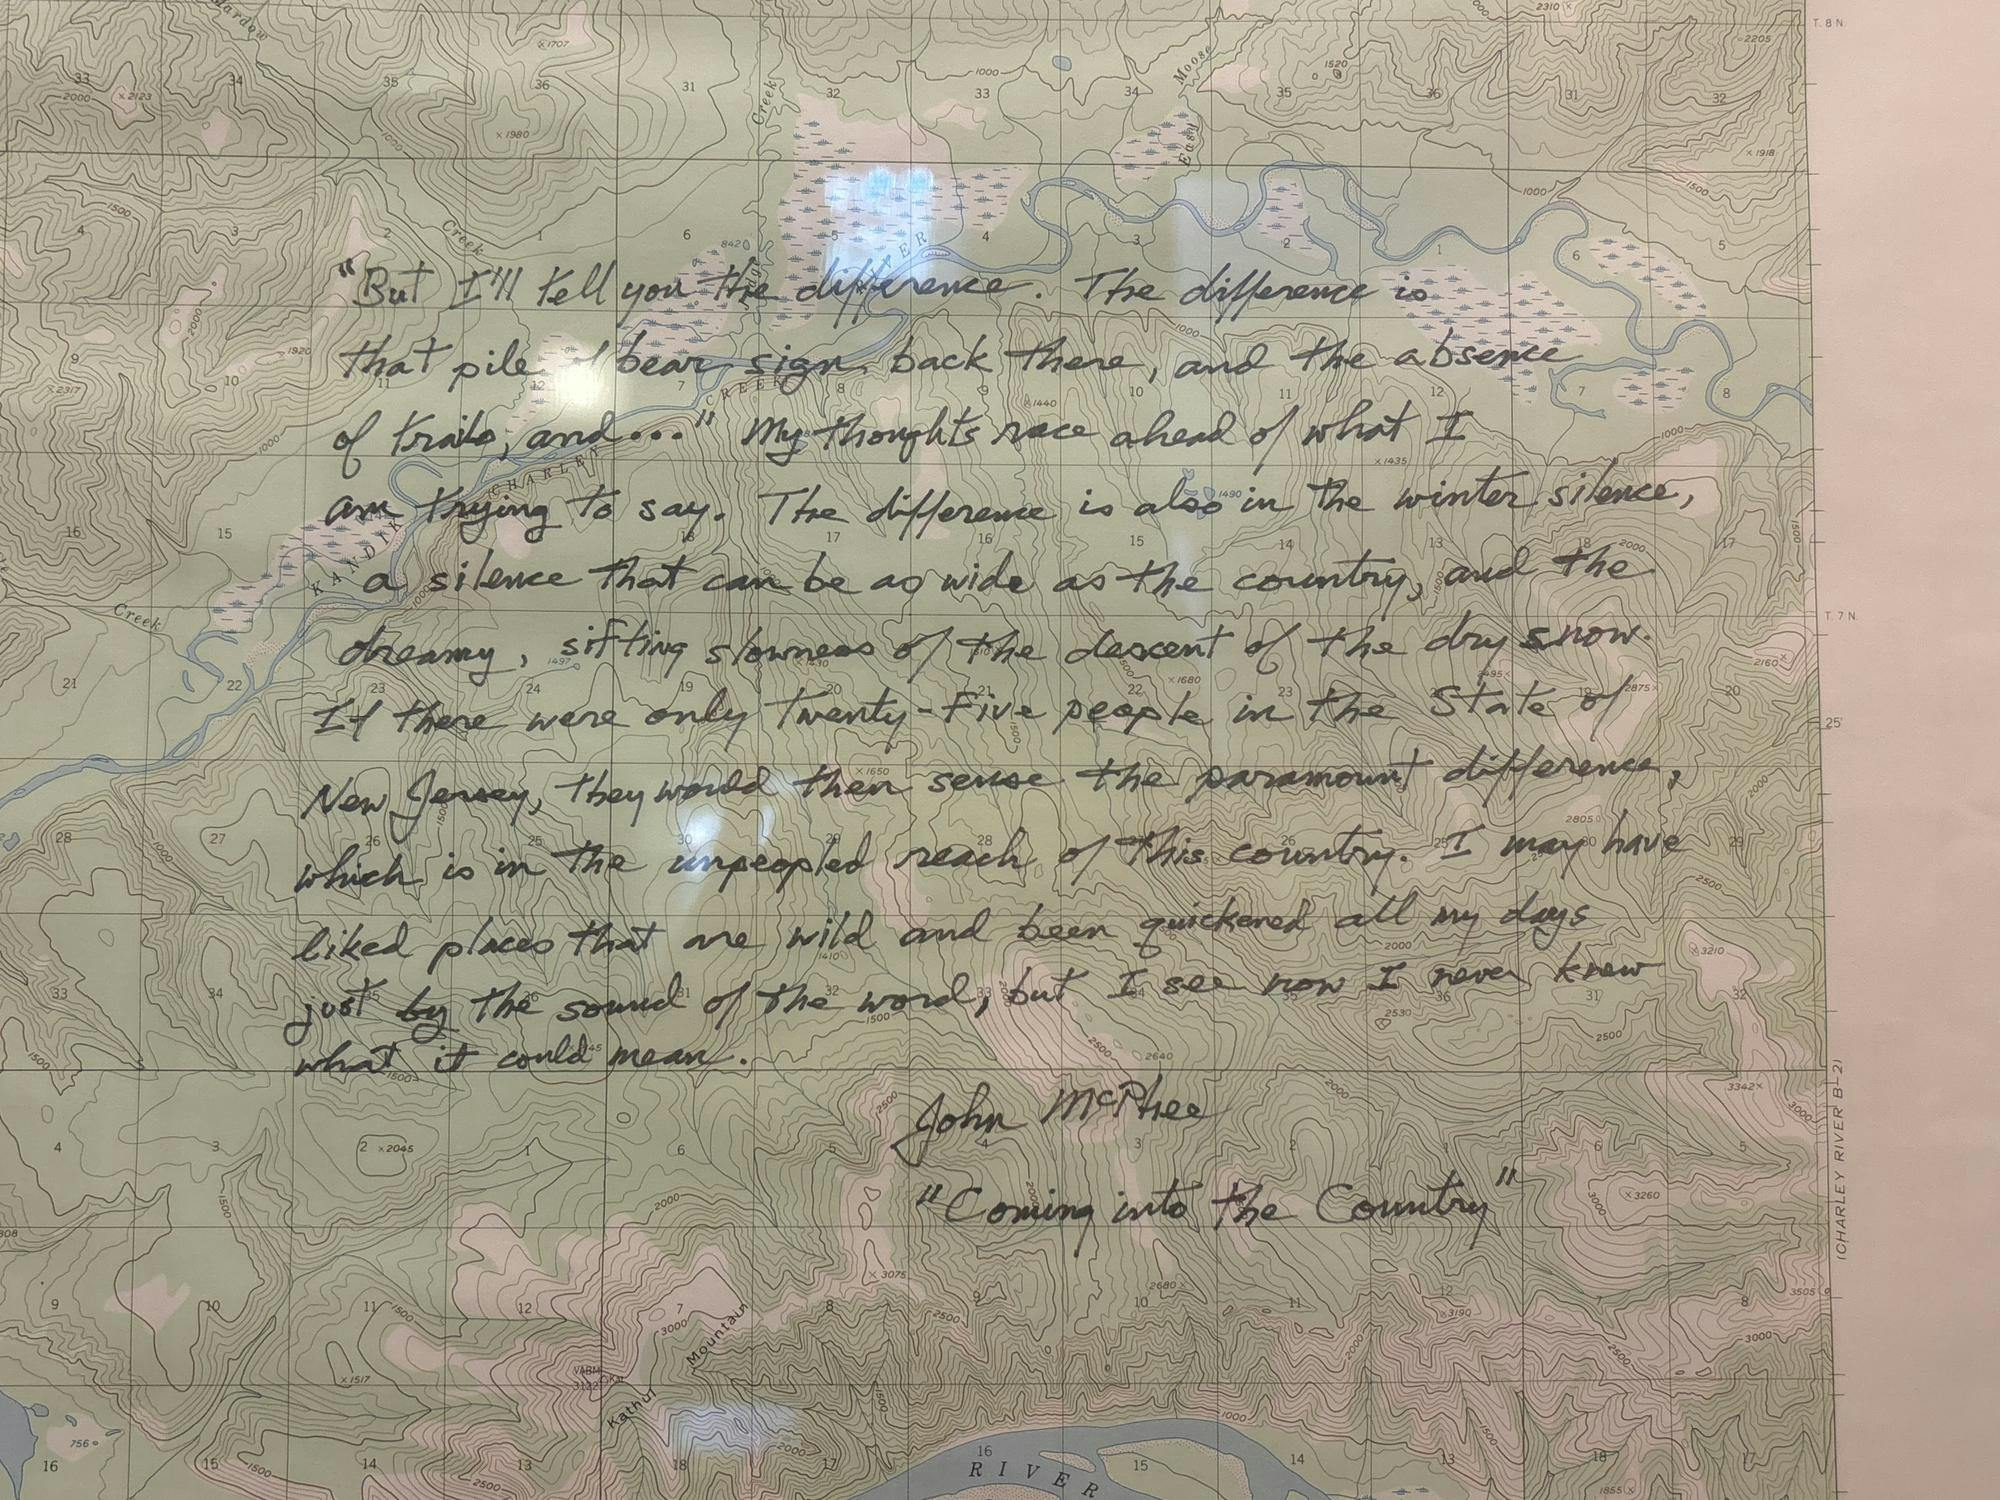 "But I'll tell you the difference. The difference is
that pile of bear sign back there, and the absence
of trails, and..." My thoughts race ahead of what I
am trying to say. The difference is also in the winter silence,
a silence that can be as wide as the country, and the
dreamy, sifting slowness of the descent of the dry snow.
If there were only twenty-five people in the State of
New Jersey, they would then sense the paramount difference,
which is in the unpeopled reach of this country. I may have
liked places that are wild and been quickened all my days
just by the sound of the word, but I see now I never knew
what it could mean.
John McPhee
"Coming into the Country"
T. 8 N.
T. 7 N.
25'
(CHARLEY RIVER B-2)
KANDIK
RIVER
CHARLEY
CREEK
Creek
Creek
Creek
East
Moose
Kathul Mountain
RIVER